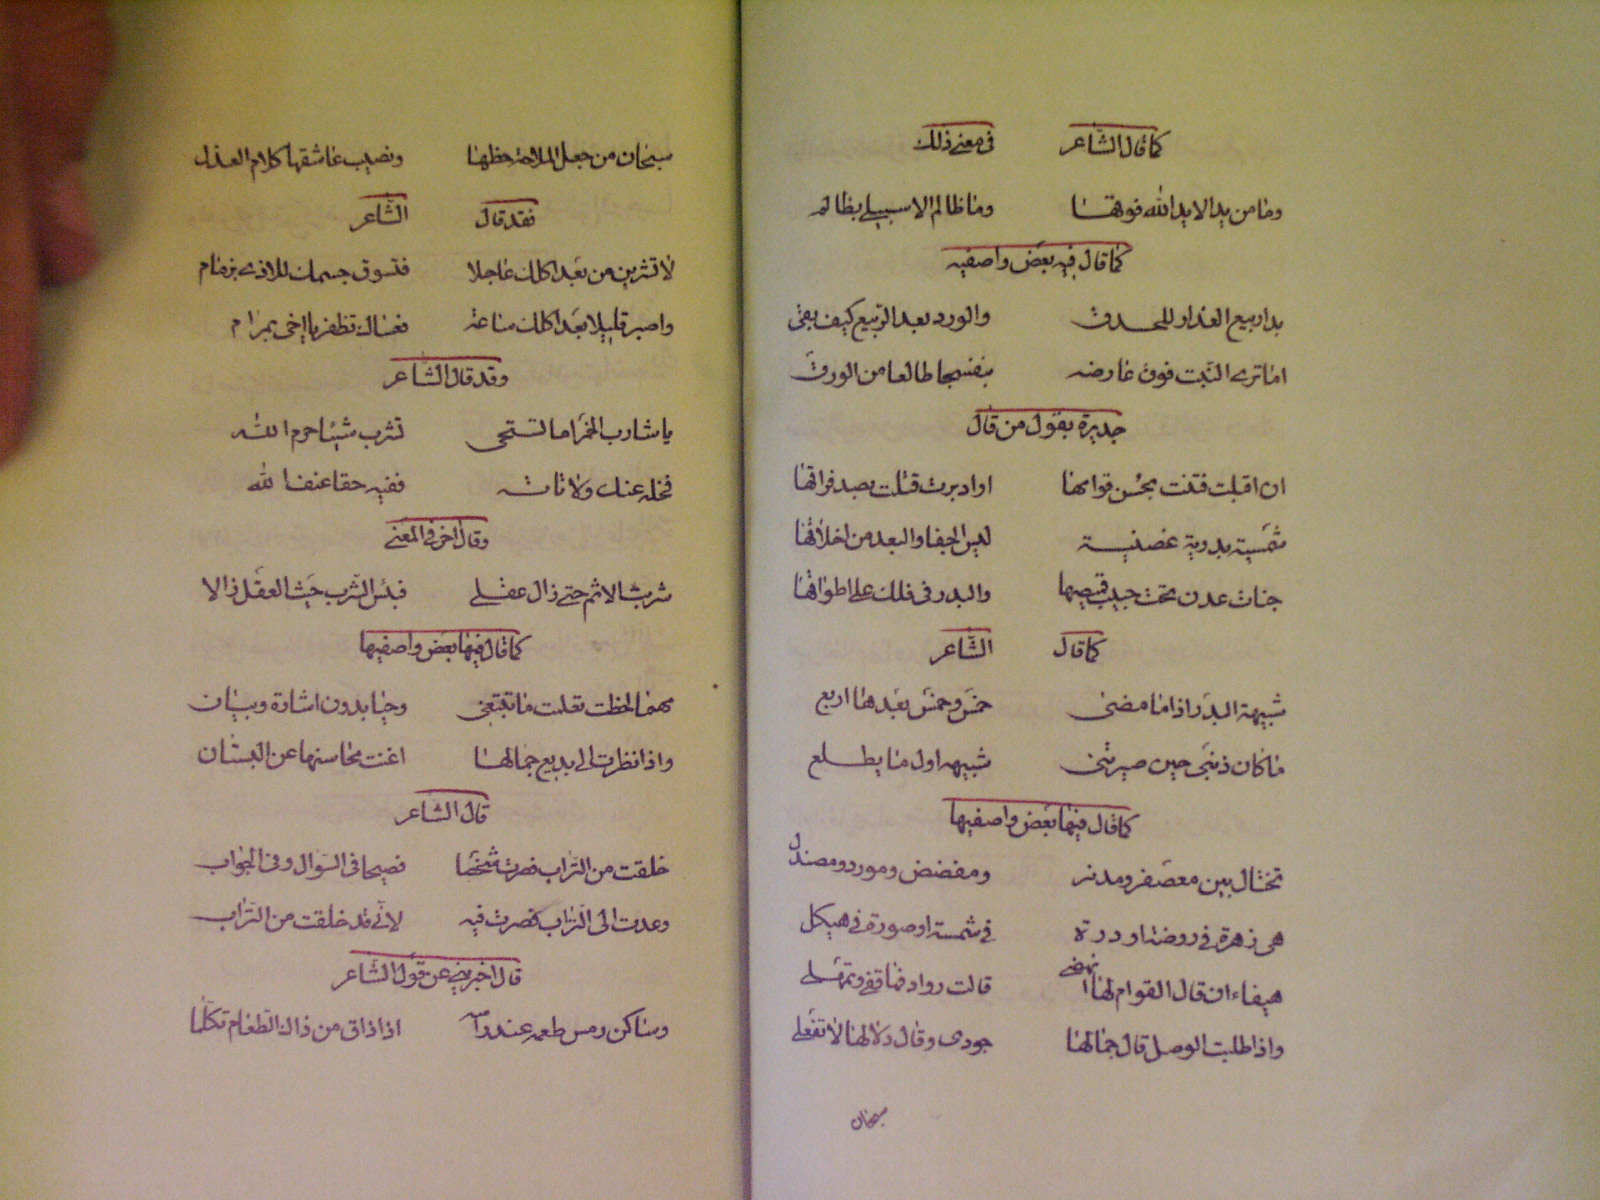 كما قال الشاعر في معنى ذلك
وما من يد الا يد الله فوقها وما ظالم الا سيبلى بظالم
كما قال فيه بعض واصفيه
بدا ربيع العذار للحدق والورد بعد الربيع كيف بقى
اما ترى النبت فوق عارضه بنفسجا طالعا من الورق
جديرة بقول من قال
ان اقبلت فتنت بحسن قوامها او ادبرت قتلت بصد فراقها
شمسية بدرية غصنية ليس الجفا والبعد من اخلاقها
جنات عدن تحت جيب قميصها والبدر في فلك على اطواقها
كما قال الشاعر
شبيهة البدر اذا ما مضى خمس وخمس بعدها اربع
ما كان ذنبي حين صيرتني شبيهه اول ما يطلع
كما قال فيها بعض واصفيها
تختال بين معصفر ومدنر ومفضض ومورد ومصندل
هي زهرة في روضة او درة في شمسة او صورة في هيكل
هيفاء ان قال القوام لها انهضي قالت روادفها قفي وتمهلي
واذا طلبت الوصل قال جمالها جودي وقال دلالها لا تفعلي
سبحان
سبحان من جعل الملاحة حظها ونصيب عاشقها كلام العذل
فقد قال الشاعر
لا تشربن من بعد اكلك عاجلا فتسوق جسمك للاذى بزمام
واصبر قليلا بعد اكلك ساعة فعساك تظفر يا اخي بمرام
وقد قال الشاعر
يا شارب الخمر اما تستحي تشرب شيئا حرم الله
فخله عنك ولا تاته ففيه حقا عنفا لله
وقال اخر في المعنى
شربت الاثم حتى زال عقلي فبئس الشرب حيث العقل زالا
كما قال فيها بعض واصفيها
مهما لحظت تعلمت ما تبتغي وحيا بدون اشارة وبيان
واذا نظرت الى بديع جمالها اغنت محاسنها عن البستان
قال الشاعر
خلقت من التراب فصرت شخصا فصيحا في السوال وفي الجواب
وعدت الى التراب فصرت فيه لاني قد خلقت من التراب
قال اخبريني عن قول الشاعر
وساكن رمس طعمه عند راسه اذا ذاق من ذاك الطعام تكلما